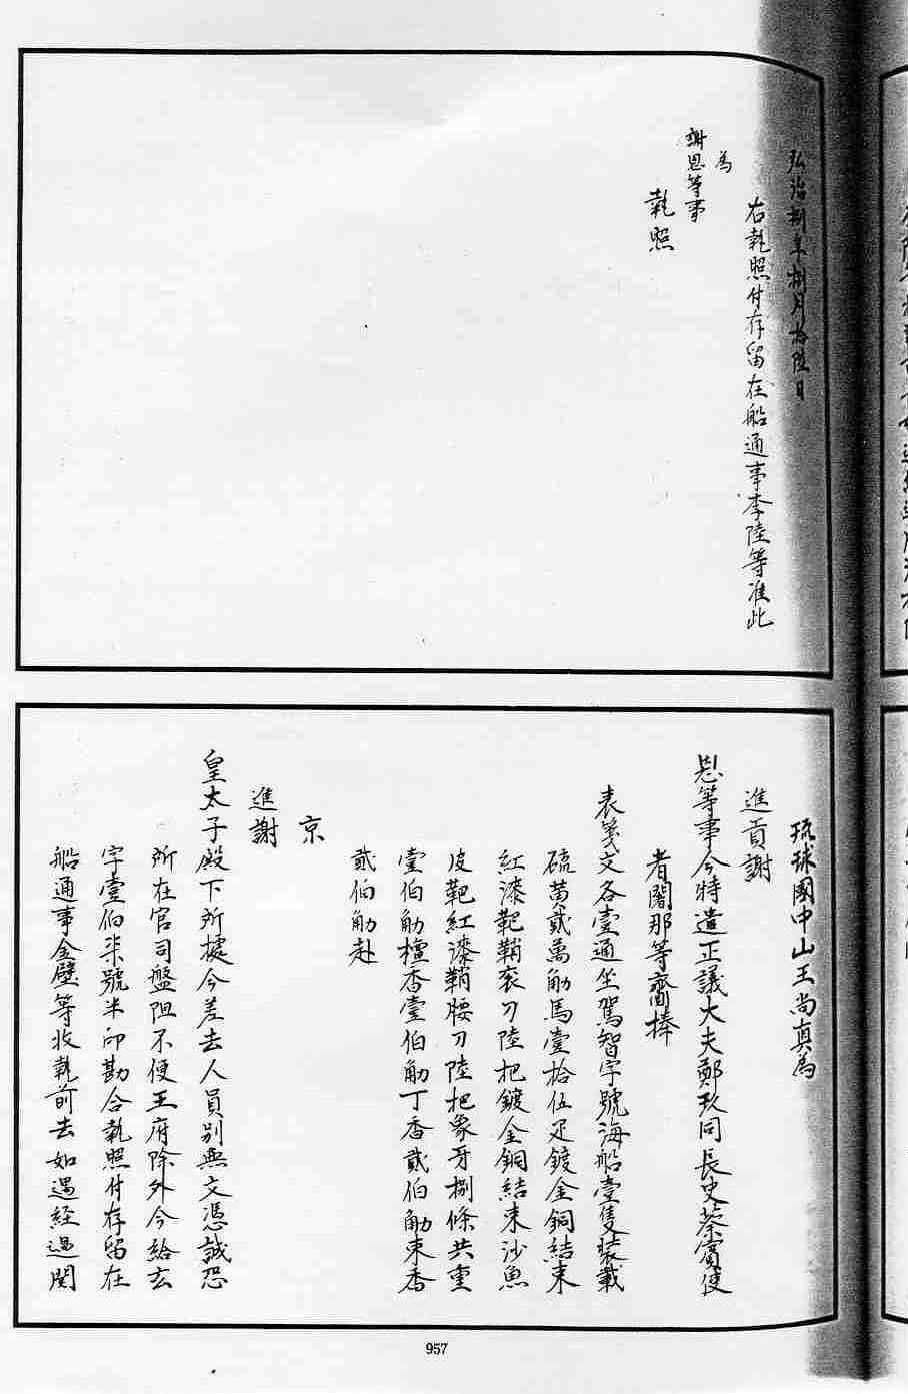 弘治捌年捌月拾陸日
右執照付存留在船通事李陸等准此
為
謝恩等事
執照
琉球國中山王尚真為
進貢謝
恩等事今特遣正議大夫鄭玖同長史蔡賓使
者闍那等齎捧
表箋文各壹通坐駕智字號海船壹隻裝載
硫黄貳萬觔馬壹拾伍疋鍍金銅結束
紅漆靶鞘衮刀陸把鍍金銅結束沙魚
皮靶紅漆鞘腰刀陸把象牙捌條共重
壹伯觔檀香壹伯觔丁香貳伯觔束香
貳伯觔赴
京
進謝
皇太子殿下所據今差去人員別無文憑誠恐
所在官司盤阻不便王府除外今給玄
字壹伯柒號半印勘合執照付存留在
船通事金璧等收執前去如遇經過関
957